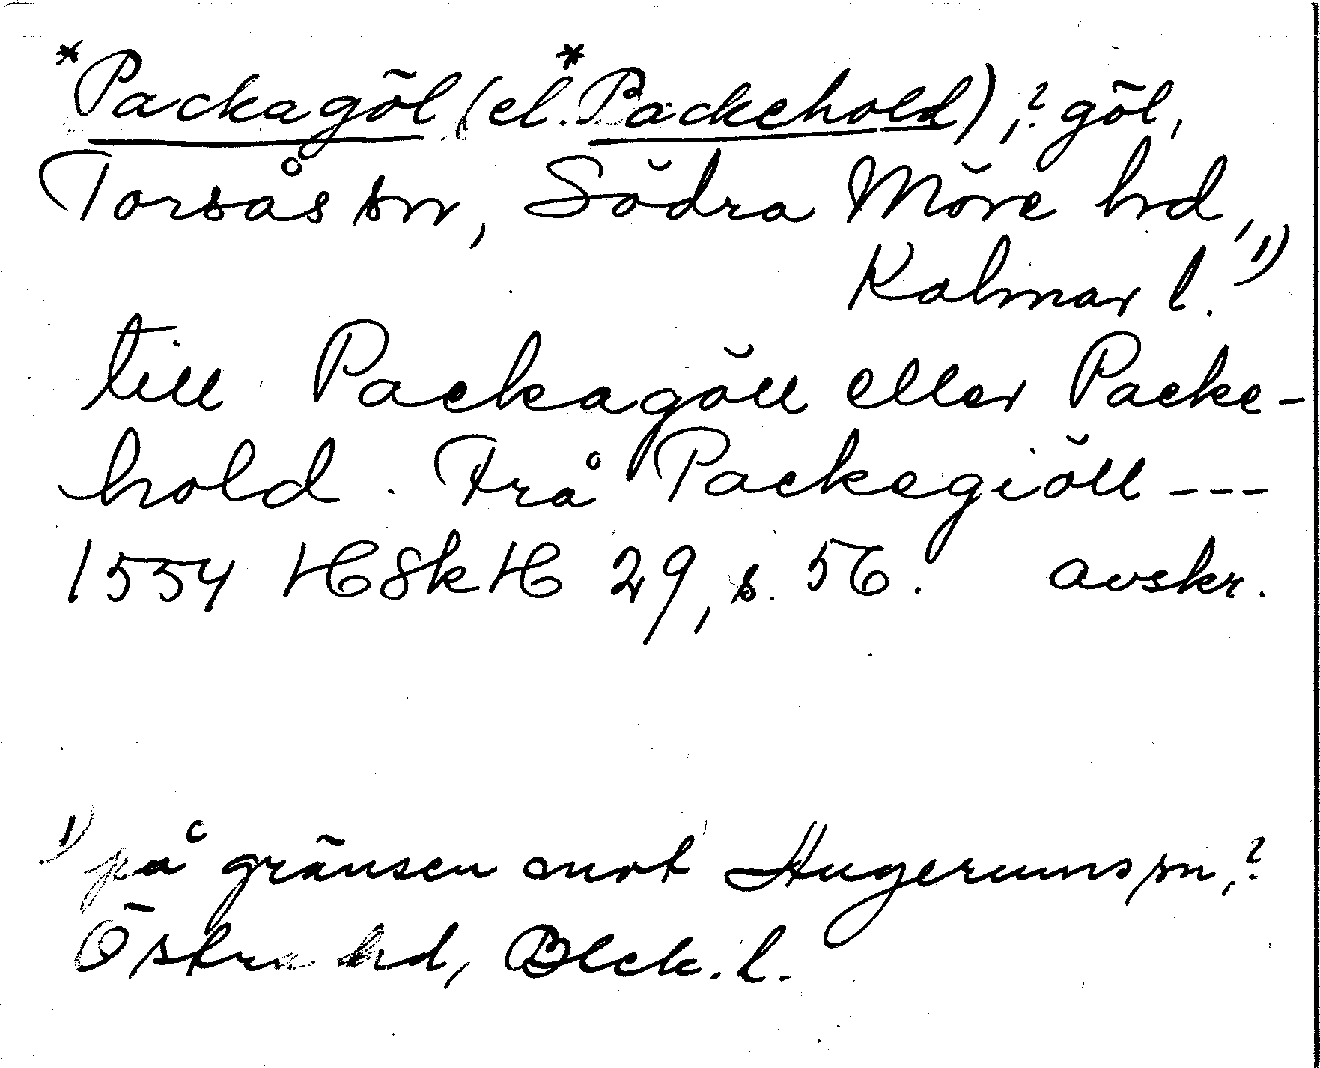 *Packagöl (el. *Packehold), ? göl,
Torsås sn, Södra Möre hd,
Kalmar l. ¹⁾
till Packagöll eller Packe-
hold. Frå Packegiöll ---
1554 HSkH 29, s. 56. avskr.
¹⁾ på gränsen mot Hugerums sn, ?
Östra hd, Blek. l.